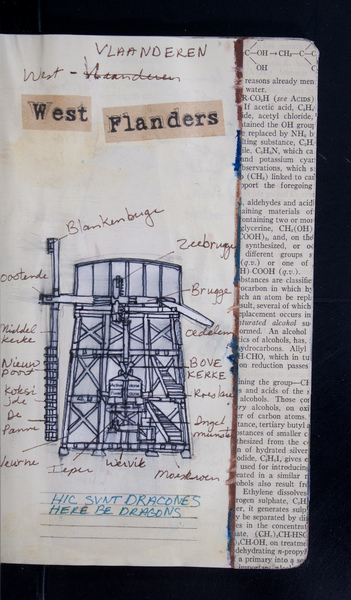 VLAANDEREN
West - Vlaanderen
West Flanders
Blankenberge
Zeebrugge
Oostende
Brugge
Middel
kerke
Oedelem
Nieuw
poort
BOVE
KERKE
Koksij
jde
Roeselare
De
Panne
Ingel
munster
Veurne
Ieper
Wervik
Moeskroen
HIC SVNT DRACONES
HERE BE DRAGONS
C—OH→CH₂—C
OH
reasons already men
water.
R·CO₂H (see ACIDS)
If acetic acid, C₂H
ide, acetyl chloride,
tained the OH group
be replaced by NH₂ b
lting substance, C₂H
ile, C₂H₅N, which ca
and potassium cyan
observations, which s
(CH₃) linked to car
pport the foregoing
, aldehydes and acid
aining materials of
containing two or mo
glycerine, CH₂(OH)
COOH)₂, and, on the
synthesized, or oc
different groups s
(q.v.) or one of
H)·COOH (q.v.).
bstances are classifie
rocarbon in which hy
ach an atom be repla
sult, several of which
placement occurs in
aturated alcohol su
ormed. An alcohol
tics of alcohols, has,
hydrocarbons. Allyl
H·CHO, which in tu
on reduction passes
ining the group—CH
s and acids of the s
alcohols. Those con
ary alcohols, on oxi
er of carbon atoms.
tance, tertiary butyl a
bstances of smaller c
thesized from the c
n of hydrated silver
odide, C₂H₅I, gives e
used for introducing
reated in a similar n
ohols also result fre
Ethylene dissolves
rogen sulphate, C₂H
er, it generates sulp
y be separated by dis
es in the concentrat
ate, (CH₃)₂CH·HSO
)₂CH·OH, on treatme
dehydrating n-propyl
a primary into a se